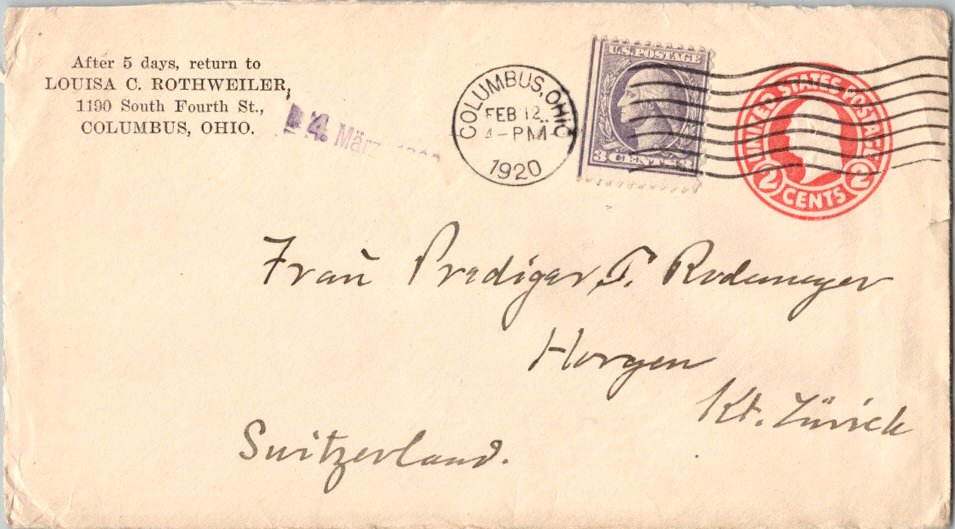 After 5 days, return to
LOUISA C. ROTHWEILER,
1190 South Fourth St.,
COLUMBUS, OHIO.
4. März
COLUMBUS, OHIO
FEB 12
4-PM
1920
U.S. POSTAGE
3 CENTS 3
UNITED STATES POSTAGE
2 CENTS 2
Frau Prediger T. Rodemeyer
Horgen
Kt. Zürich
Switzerland.